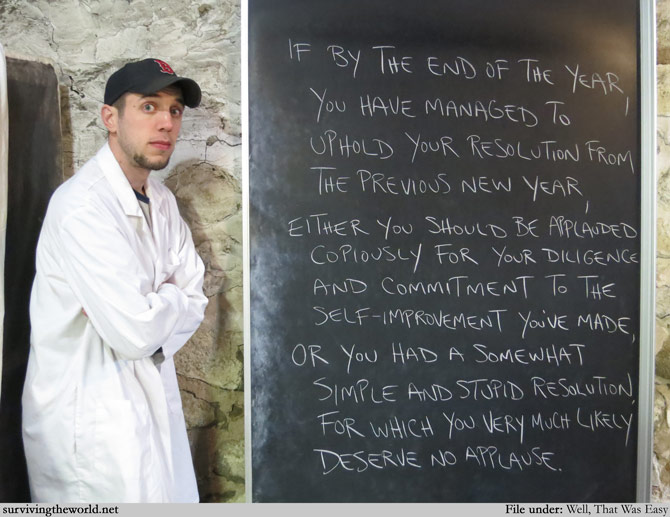 IF BY THE END OF THE YEAR,
YOU HAVE MANAGED TO
UPHOLD YOUR RESOLUTION FROM
THE PREVIOUS NEW YEAR,
EITHER YOU SHOULD BE APPLAUDED
COPIOUSLY FOR YOUR DILIGENCE
AND COMMITMENT TO THE
SELF-IMPROVEMENT YOU'VE MADE,
OR YOU HAD A SOMEWHAT
SIMPLE AND STUPID RESOLUTION,
FOR WHICH YOU VERY MUCH LIKELY
DESERVE NO APPLAUSE.
survivingtheworld.net
File under: Well, That Was Easy